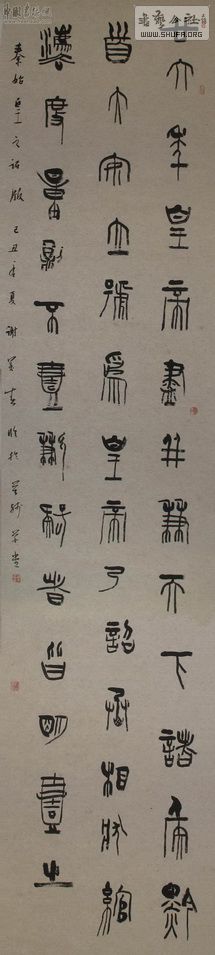 书艺公社
WWW.SHUFA.ORG
廿六年皇帝盡并兼天下諸侯黔
首大安立號爲皇帝乃詔丞相狀綰
灋度量則不壹歉疑者皆明壹之
秦始皇之詔版 己丑年夏 謝 臨於 草堂